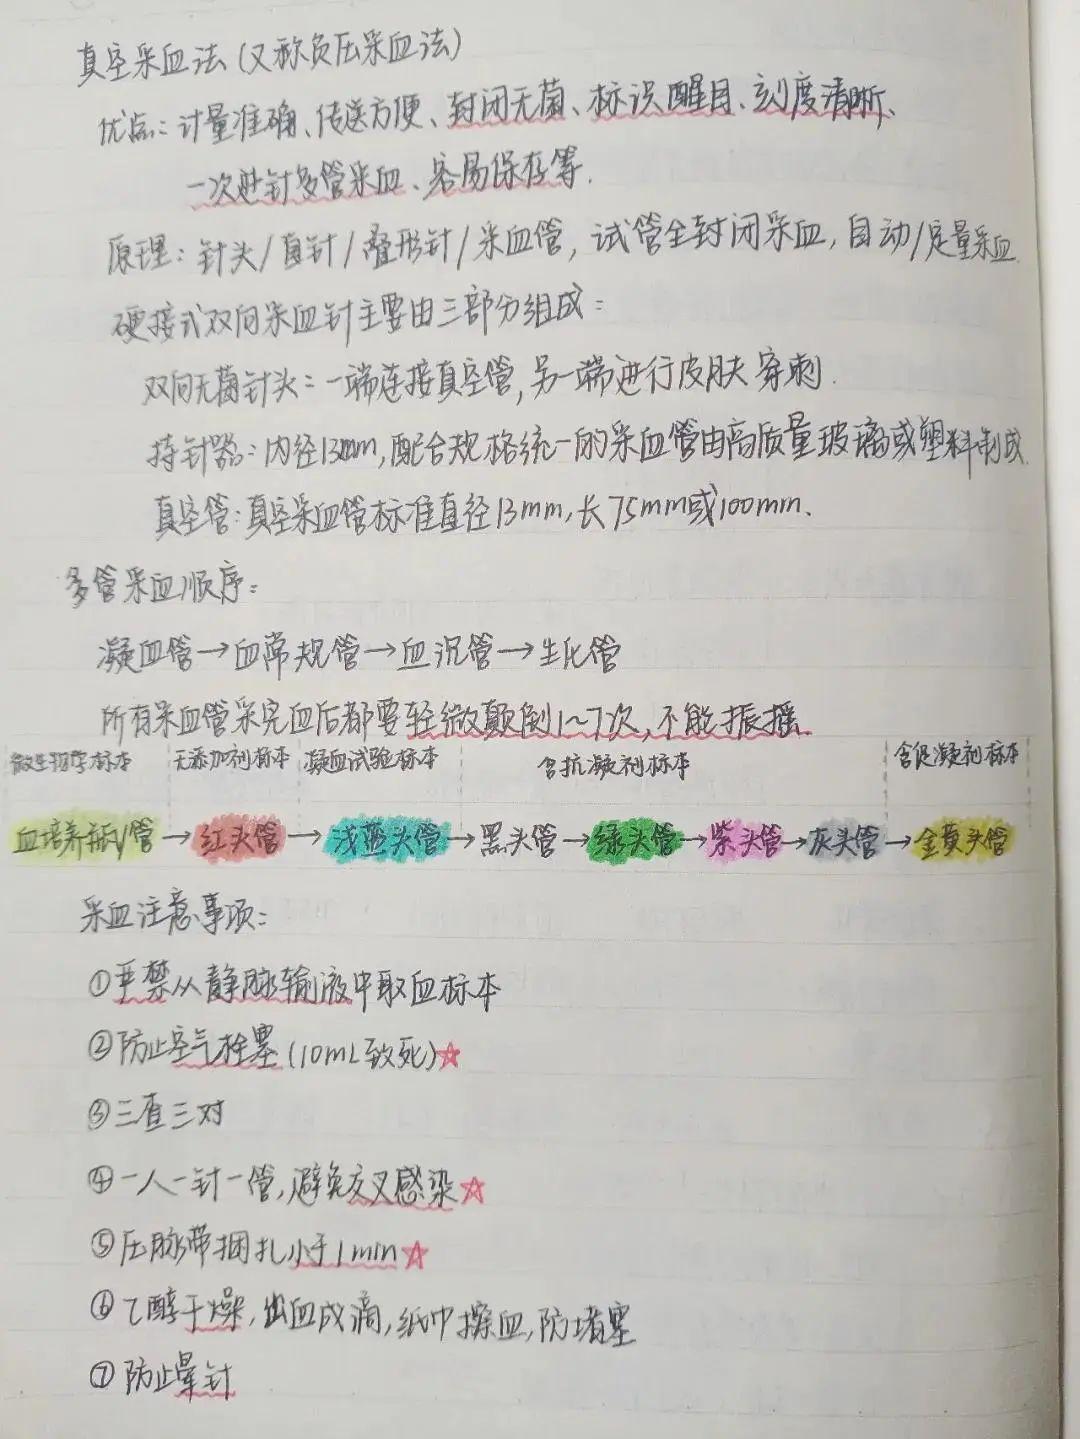 真空采血法(又称负压采血法)
优点:计量准确、传送方便、封闭无菌、标识醒目、刻度清晰、
一次进针多管采血、容易保存等.
原理:针头/直针/叠形针/采血管,试管全封闭采血,自动/定量采血.
硬接式双向采血针主要由三部分组成:
双向无菌针头:一端连接真空管,另一端进行皮肤穿刺.
持针器:内径13mm,配合规格统一的采血管由高质量玻璃或塑料制成.
真空管:真空采血管标准直径13mm,长75mm或100mm.
多管采血顺序:
凝血管→血常规管→血沉管→生化管
所有采血管采完血后都要轻微颠倒1~7次,不能振摇.
微生物学标本 无添加剂标本 凝血试验标本 含抗凝剂标本 含促凝剂标本
血培养瓶/管→红头管→浅蓝头管→黑头管→绿头管→紫头管→灰头管→金黄头管
采血注意事项:
①严禁从静脉输液中取血标本
②防止空气栓塞(10mL致死)☆
③三查三对
④一人一针一管,避免交叉感染☆
⑤压脉带捆扎小于1min☆
⑥乙醇干燥,出血成滴,纸巾擦血,防堵塞
⑦防止晕针